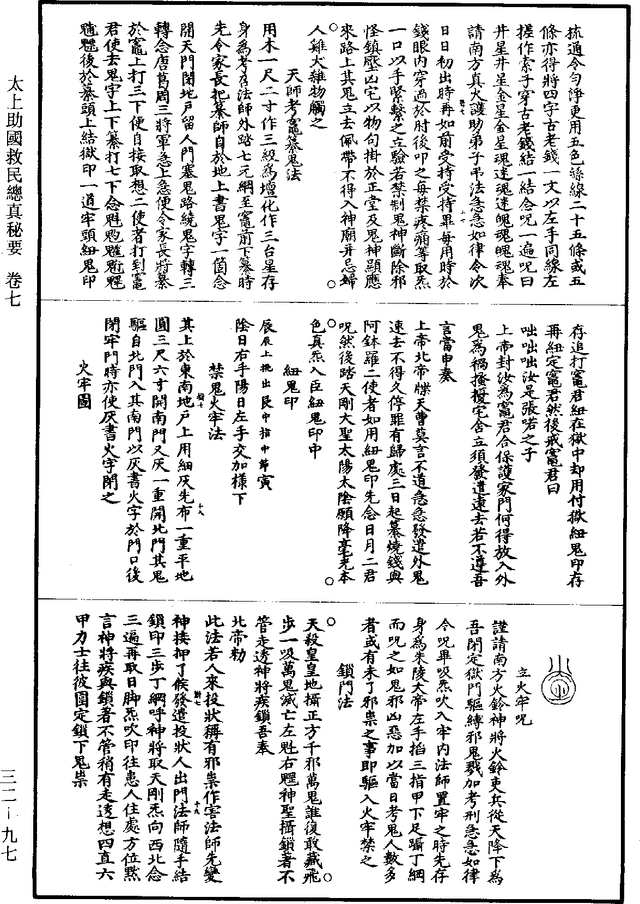 梳通令勻淨更用五色絲線二十五條或五
條亦得將四字古老錢一文以左手同線左
搓作索子穿古老錢結一結念呪一遍呪曰
井星井星金星金星魂迷魂迷魄魂魄魂奉
請南方真火護助弟子弔法急急如律令次
日日初出時再如前受持受持畢每用時於
錢眼內穿過於肘後叩之每禁疼痛等取炁
一口以手緊繫之立驗若禁制鬼神斷除邪
怪鎮壓凶宅以物句掛於正堂及鬼神顯應
來路上其鬼立去佩帶不得入神廟并忌婦
人雞犬雜物觸之
天師考竈鬼法
用木一尺二寸作三級為壇化作三台星存
身為考召法師外踏七元綱至竈前下時
先令家長把師自於地上書鬼字一箇念
開天門閉地戶留人門塞鬼路繞鬼字轉三
轉念唐葛周三將軍急上急便令家長將
於竈上打三下便自接取想二使者打到竈
君使去鬼字上下打七下念魁
後於頭上結獄印一道牢頭紐鬼印
存追打竈君紐在獄中却用付獄紐鬼印存
再紐定竈君然後戒竈君曰
咄咄咄汝是張喏之子
上帝封汝為竈君合保護家門何得放入外
鬼為禍搔擾宅舍立須發遣速去若不遵吾
言當申奏
上帝北帝牒天曹莫言不道急急發遣外鬼
速去不得久停罪有歸處三日起燒錢與
阿鉢羅二使者如用紐鬼印先念日月二君
呪然後踏天剛大聖太陽太陰願降毫光本
色真炁入臣紐鬼印中
紐鬼印
辰辰上挑出民中指中節寅
陰日右手陽日左手交加樣下
禁鬼火牢法
其上於東南地戶上用細灰先布一重平地
圓三尺六寸開南門又灰一重開北門其鬼
驅自北門入其南門以灰書火字於門口後
閉牢門時亦使灰書火字閉之
火牢圖
立火牢呪
謹請南方火鈴神將火鈴吏兵從天降下為
吾閉定獄門驅縛邪鬼戮加考刑急急如律
令呪畢吸炁吹入牢內法師置牢之時先存
身為朱陵大帝左手掐三指甲下足躡丁綱
而呪之如鬼邪凶惡加以當日考鬼人數多
者或有未了邪祟之事即驅入火牢禁之
鎖門法
天殺皇皇地攝正方千邪萬鬼誰復敢藏飛
步一吸萬鬼滅亡左魁右神聖攝鎖著不
管走透神將疾鎖吾奉
北帝勑
此法若人來投狀稱有邪祟作害法師先變
神接押了候發遣投狀人出門法師隨手結
鎖印三步丁綱呼神將取天剛炁向西北念
三遍再取日脚炁吹印往患人住處方位默
言神將疾與鎖著不管稍有走透想四直六
甲力士往彼圍定鎖下鬼祟
太上助國救民總真秘要 卷七
三二—九七